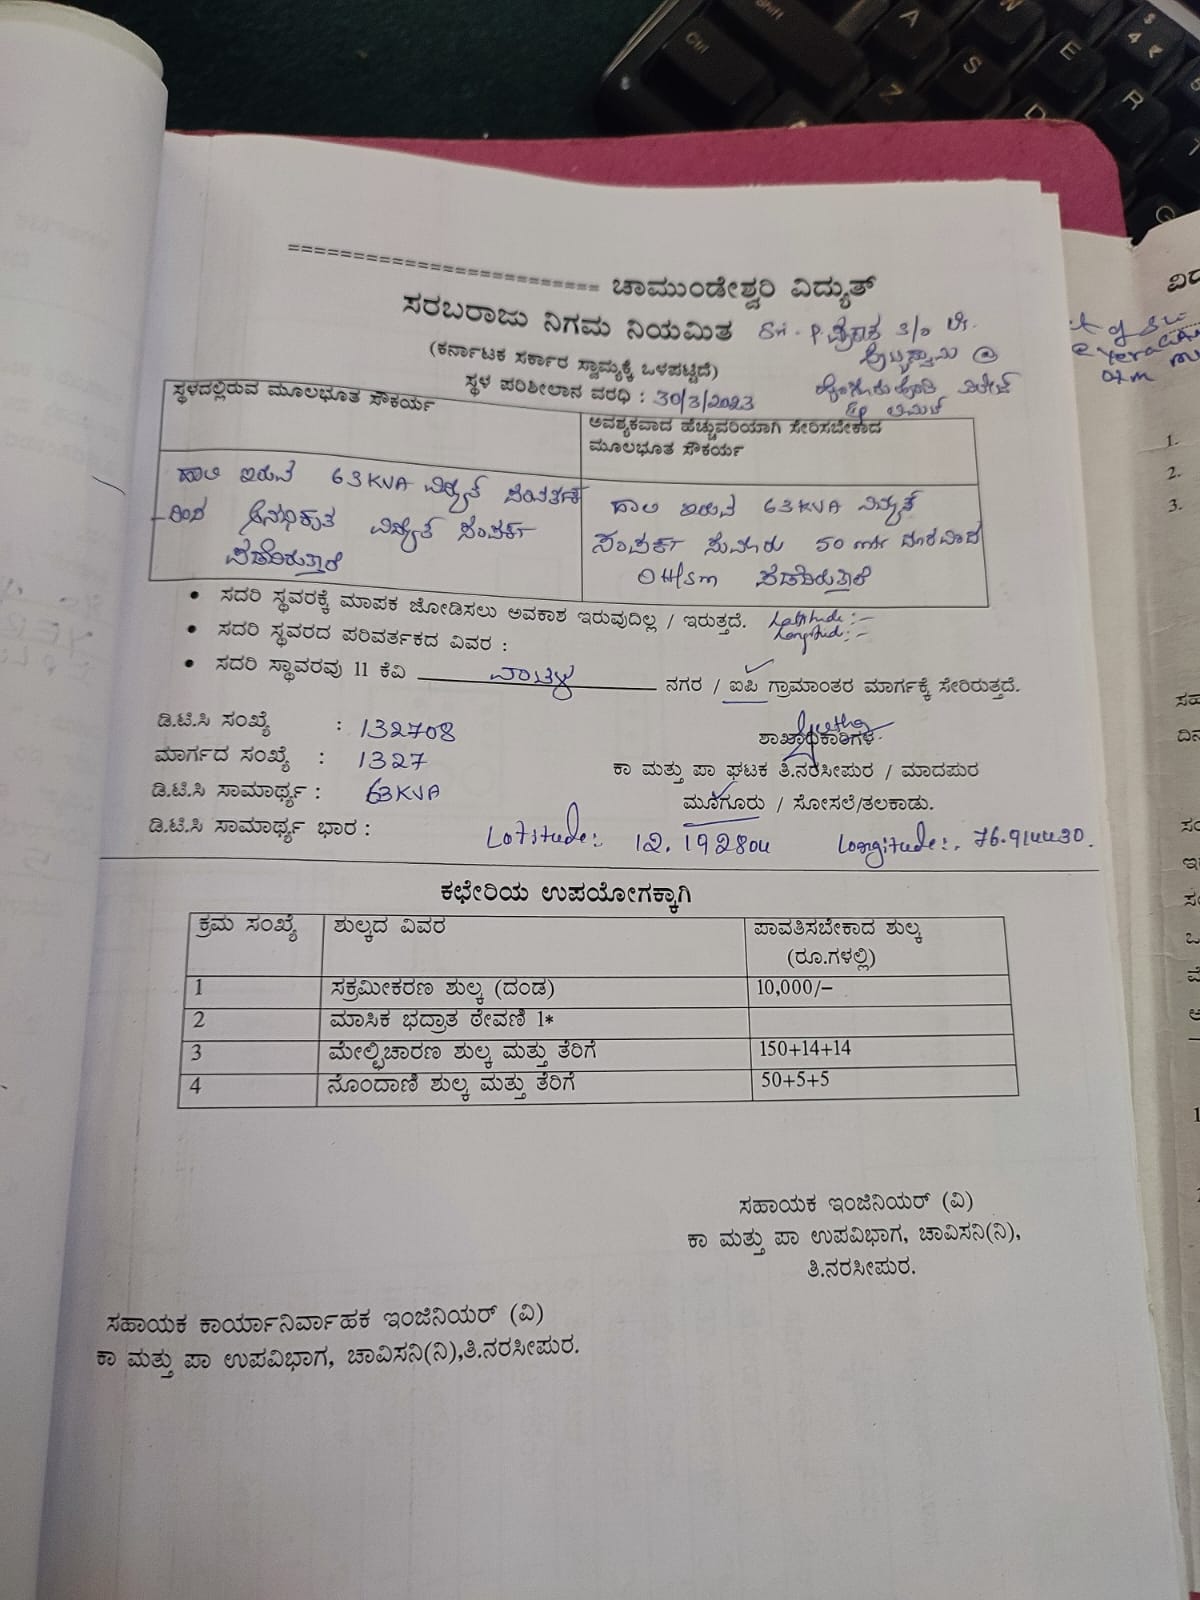 ========================== ಚಾಮುಂಡೇಶ್ವರಿ ವಿದ್ಯುತ್
ಸರಬರಾಜು ನಿಗಮ ನಿಯಮಿತ Sri - P.
(ಕರ್ನಾಟಕ ಸರ್ಕಾರ ಸ್ವಾಮ್ಯಕ್ಕೆ ಒಳಪಟ್ಟಿದೆ)
ಸ್ಥಳ ಪರಿಶೀಲಾನ ವರಧಿ : 30/3/2023
ಸ್ಥಳದಲ್ಲಿರುವ ಮೂಲಭೂತ ಸೌಕರ್ಯ
ಅವಶ್ಯಕವಾದ ಹೆಚ್ಚುವರಿಯಾಗಿ ಸೇರಿಸಬೇಕಾದ
ಮೂಲಭೂತ ಸೌಕರ್ಯ
ಹಾಲಿ ಇರುವ 63KVA ವಿದ್ಯುತ್ ಪರಿವರ್ತಕ
ದಿಂದ ಅನಧಿಕೃತ ವಿದ್ಯುತ್ ಸಂಪರ್ಕ
ಪಡೆದಿರುತ್ತಾರೆ
ಹಾಲಿ ಇರುವ 63KVA ವಿದ್ಯುತ್
ಸಂಪರ್ಕ ಸುಮಾರು 50 mtr ದೂರವಿದ್ದು
ಪಡೆದಿರುತ್ತಾರೆ
• ಸದರಿ ಸ್ಥವರಕ್ಕೆ ಮಾಪಕ ಜೋಡಿಸಲು ಅವಕಾಶ ಇರುವುದಿಲ್ಲ / ಇರುತ್ತದೆ. Latitude :-
• ಸದರಿ ಸ್ಥವರದ ಪರಿವರ್ತಕದ ವಿವರ : Longitud :-
• ಸದರಿ ಸ್ಥಾವರವು 11 ಕೆವಿ ನಗರ / ಐಪಿ ಗ್ರಾಮಾಂತರ ಮಾರ್ಗಕ್ಕೆ ಸೇರಿರುತ್ತದೆ.
ಡಿ.ಟಿ.ಸಿ ಸಂಖ್ಯೆ : 132708
ಮಾರ್ಗದ ಸಂಖ್ಯೆ : 1327
ಡಿ.ಟಿ.ಸಿ ಸಾಮಾರ್ಥ್ಯ : 63KVA
ಡಿ.ಟಿ.ಸಿ ಸಾಮಾರ್ಥ್ಯ ಭಾರ :
ಶಾಖಾಧಿಕಾರಿಗಳ
ಕಾ ಮತ್ತು ಪಾ ಘಟಕ ತಿ.ನರಸೀಪುರ / ಮಾದಪುರ
ಮೂಗೂರು / ಸೋಸಲೆ/ತಲಕಾಡು.
Lotitude:- 12.192804 Longitude:- 76.914430.
ಕಛೇರಿಯ ಉಪಯೋಗಕ್ಕಾಗಿ
ಕ್ರಮ ಸಂಖ್ಯೆ ಶುಲ್ಕದ ವಿವರ ಪಾವತಿಸಬೇಕಾದ ಶುಲ್ಕ
(ರೂ.ಗಳಲ್ಲಿ)
1 ಸಕ್ರಮೀಕರಣ ಶುಲ್ಕ (ದಂಡ) 10,000/–
2 ಮಾಸಿಕ ಭದ್ರಾತ ಠೇವಣಿ 1*
3 ಮೇಲ್ವಿಚಾರಣ ಶುಲ್ಕ ಮತ್ತು ತೆರಿಗೆ 150+14+14
4 ನೊಂದಾಣಿ ಶುಲ್ಕ ಮತ್ತು ತೆರಿಗೆ 50+5+5
ಸಹಾಯಕ ಇಂಜಿನಿಯರ್ (ವಿ)
ಕಾ ಮತ್ತು ಪಾ ಉಪವಿಭಾಗ, ಚಾವಿಸನಿ(ನಿ),
ತಿ.ನರಸೀಪುರ.
ಸಹಾಯಕ ಕಾರ್ಯಾನಿರ್ವಾಹಕ ಇಂಜಿನಿಯರ್ (ವಿ)
ಕಾ ಮತ್ತು ಪಾ ಉಪವಿಭಾಗ, ಚಾವಿಸನಿ(ನಿ),ತಿ.ನರಸೀಪುರ.